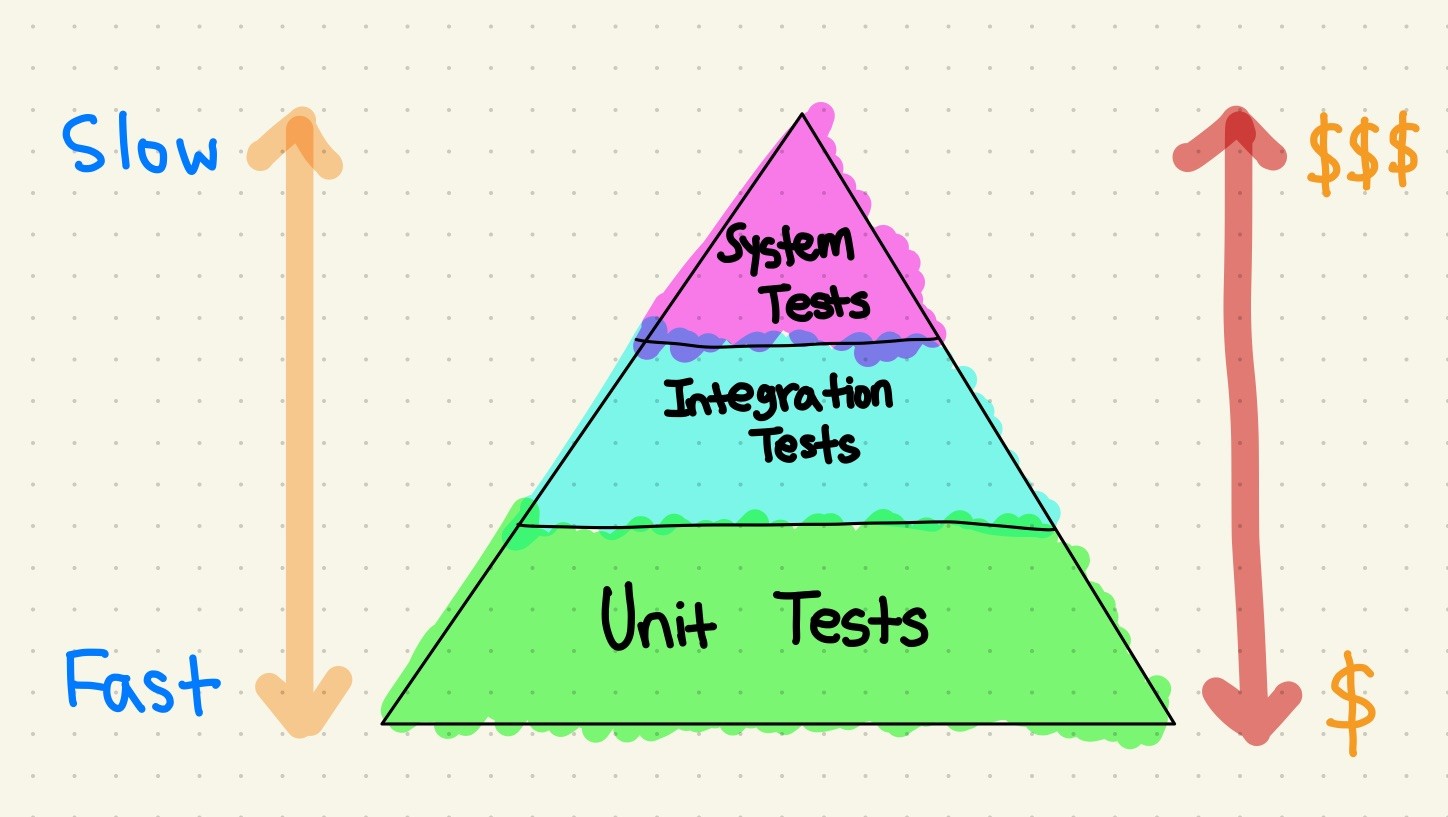 Slow
$$$
System
Tests
Integration
Tests
Unit Tests
Fast
$